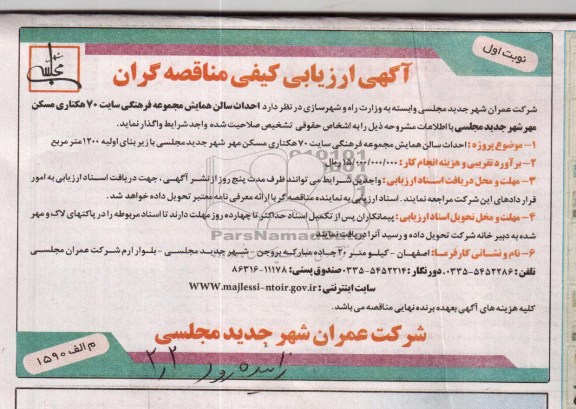 نوبت اول
شهر
مجلسی
آگهی ارزیابی کیفی مناقصه گران
شرکت عمران شهر جدید مجلسی وابسته به وزارت راه و شهرسازی در نظر دارد احداث سالن همایش مجموعه فرهنگی سایت ۷۰ هکتاری مسکن
مهر شهر جدید مجلسی با اطلاعات مشروحه ذیل را به اشخاص حقوقی تشخیص صلاحیت شده واجد شرایط واگذار نماید.
۱- موضوع پروژه : احداث سالن همایش مجموعه فرهنگی سایت ۷۰ هکتاری مسکن مهر شهر جدید مجلسی با زیر بنای اولیه ۱۲۰۰ متر مربع
۲- برآورد تقریبی و هزینه انجام کار : ۱۵/۰۰۰/۰۰۰/۰۰۰ ریال
۳- مهلت و محل دریافت اسناد ارزیابی : واجدین شرایط می توانند ظرف مدت پنج روز از نشر آگهی ، جهت دریافت اسناد ارزیابی به امور
قرار دادهای این شرکت مراجعه نمایند . اسناد ارزیابی به نماینده مناقصه گر با ارائه معرفی نامه معتبر تحویل داده خواهد شد.
۴- مهلت و محل تحویل اسناد ارزیابی : پیمانکاران پس از تکمیل اسناد حداکثر تا چهارده روز مهلت دارند تا اسناد مربوطه را در پاکتهای لاک و مهر
شده به دبیر خانه شرکت تحویل داده و رسید آنرا دریافت نمایند.
ParsNamadData
۶- نام و نشانی کارفرما: اصفهان - کیلومتر ۲۰ جاده مبارکه بروجن - شهر جدید مجلسی - بلوار ارم شرکت عمران مجلسی
تلفن : ۵۴۵۲۲۸۶-۰۳۳۵ دورنگار : ۵۴۵۲۲۱۴-۰۳۳۵ صندوق پستی: ۱۱۱۷۸-۸۶۳۱۶
سایت اینترنتی : WWW.majlessi-ntoir.gov.ir
کلیه هزینه های آگهی بعهده برنده نهایی مناقصه می باشد.
شرکت عمران شهر جدید مجلسی
م الف ۱۵۹۰
زاینده رود ۲٫۲